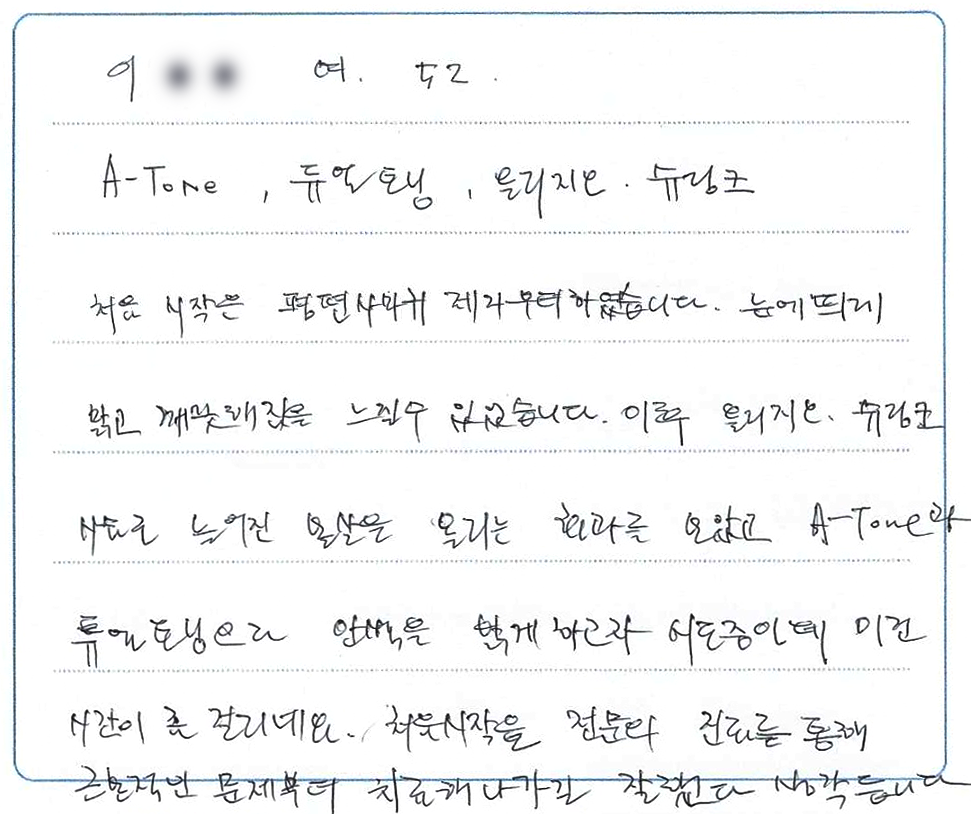 이 여. 52.
A-Tone, 듀얼토닝, 올리지오. 슈링크
처음 시작은 편평사마귀 제거부터하였습니다. 눈에띄게
맑고 깨끗해짐을 느낄수 있었습니다. 이후 올리지오. 슈링크
시도로 늘어진 볼살은 올리는 효과를 보았고 A-Tone과
듀얼토닝으로 안색을 밝게하고자 시도중인데 이건
시간이 좀 걸리네요. 처음시작을 전문의 진료를 통해
근본적인 문제부터 치료해나가길 잘했다 생각듭니다